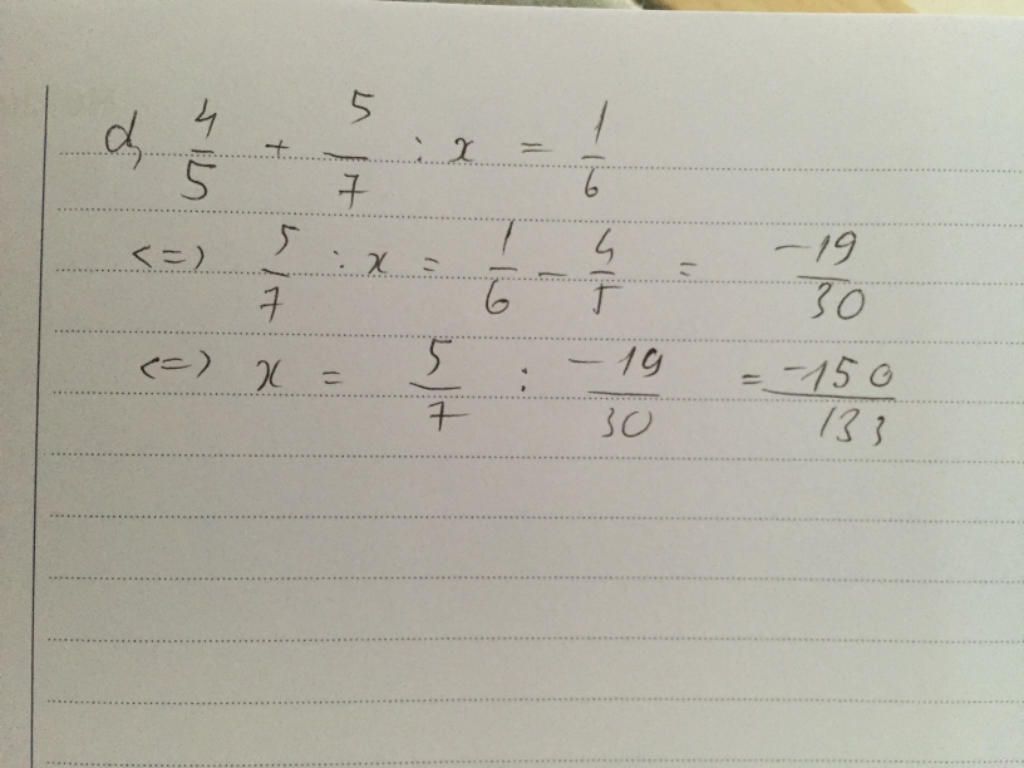 d, 4/5 + 5/7 : x = 1/6
<=> 5/7 : x = 1/6 - 4/5 = -19/30
<=> x = 5/7 : -19/30 = -150/133